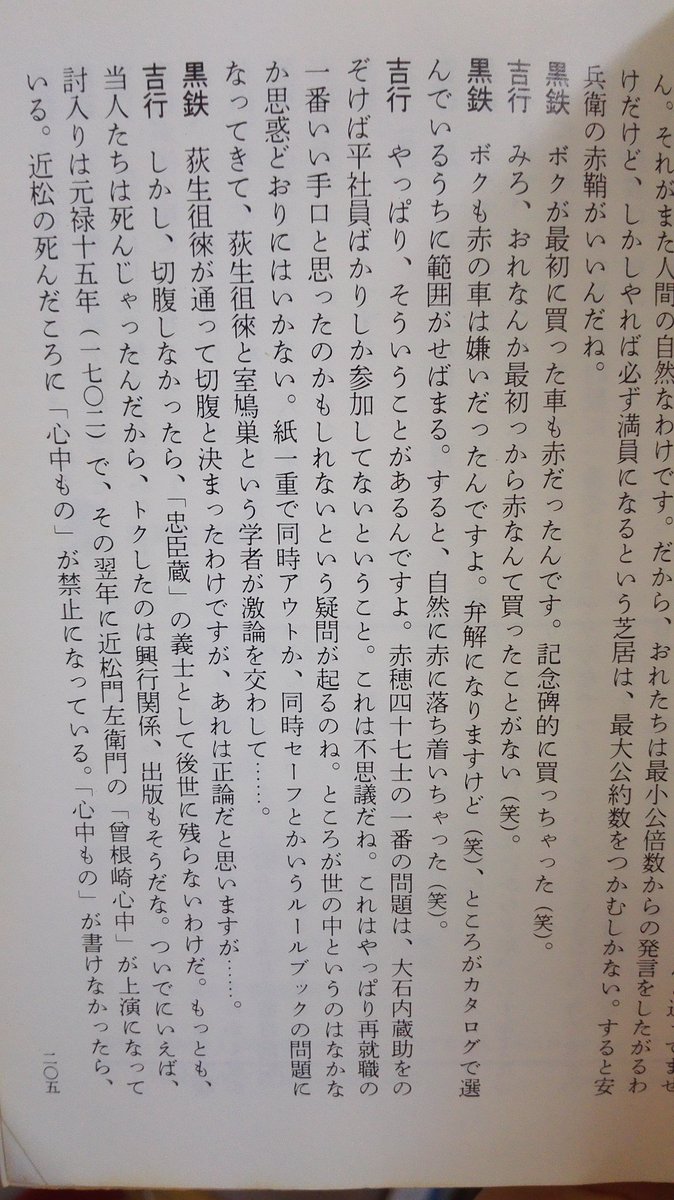 ん。それがまた人間の自然なわけです。だから、おれたちは最小公倍数からの発言をしたがるわ
けだけど、しかしやれば必ず満員になるという芝居は、最大公約数をつかむしかない。すると安
兵衛の赤鞘がいいんだね。
黒鉄　ボクが最初に買った車も赤だったんです。記念碑的に買っちゃった（笑）。
吉行　みろ、おれなんか最初っから赤なんて買ったことがない（笑）。
黒鉄　ボクも赤の車は嫌いだったんですよ。弁解になりますけど（笑）、ところがカタログで選
んでいるうちに範囲がせばまる。すると、自然に赤に落ち着いちゃった（笑）。
吉行　やっぱり、そういうことがあるんですよ。赤穂四十七士の一番の問題は、大石内蔵助をの
ぞけば平社員ばかりしか参加してないということ。これは不思議だね。これはやっぱり再就職の
一番いい手口と思ったのかもしれないという疑問が起るのね。ところが世の中というのはなかな
か思惑どおりにはいかない。紙一重で同時アウトか、同時セーフとかいうルールブックの問題に
なってきて、荻生徂徠と室鳩巣という学者が激論を交わして……。
黒鉄　荻生徂徠が通って切腹と決まったわけですが、あれは正論だと思いますが……。
吉行　しかし、切腹しなかったら、「忠臣蔵」の義士として後世に残らないわけだ。もっとも、
当人たちは死んじゃったんだから、トクしたのは興行関係、出版もそうだな。ついでにいえば、
討入りは元禄十五年（一七〇二）で、その翌年に近松門左衛門の「曾根崎心中」が上演になって
いる。近松の死んだころに「心中もの」が禁止になっている。「心中もの」が書けなかったら、
二〇五